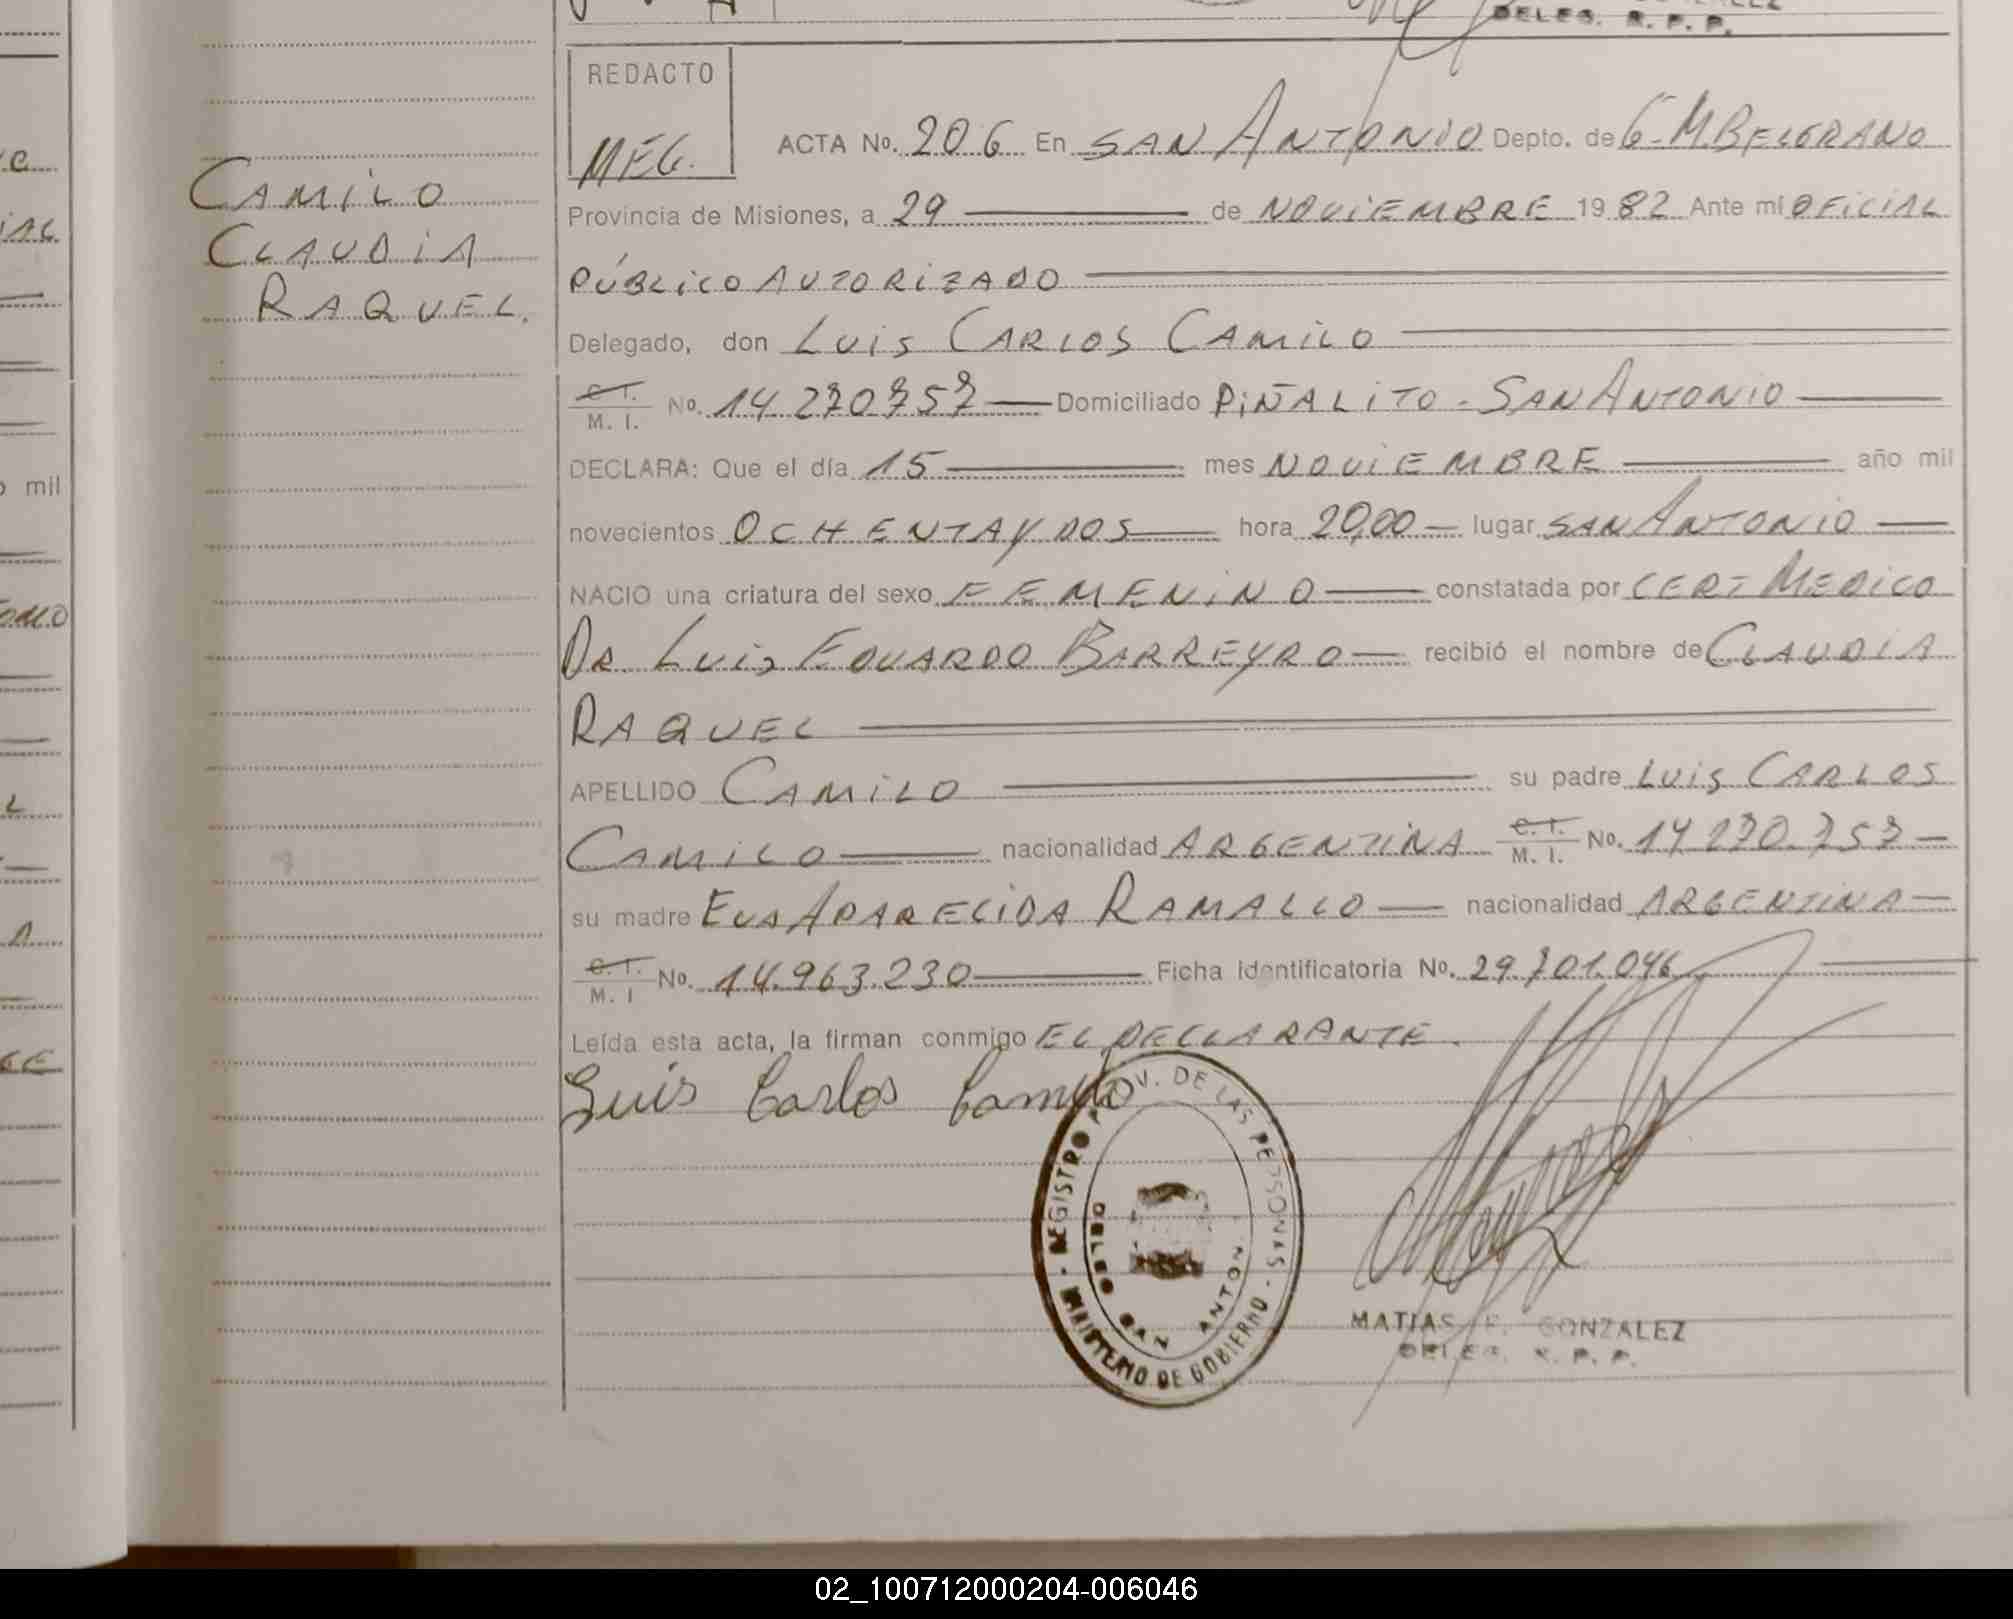 DELEG. R. P. P.
REDACTO
MEG.
ACTA No. 206 En SAN ANTONIO Depto. de G. M. BELGRANO
CAMILO
CLAUDIA
RAQUEL.
Provincia de Misiones, a 29 de NOVIEMBRE 1982 Ante mí OFICIAL
PÚBLICO AUTORIZADO
Delegado, don LUIS CARLOS CAMILO
C. I.
M. I. No. 14.270.757 Domiciliado PIÑALITO - SAN ANTONIO
DECLARA: Que el día 15 mes NOVIEMBRE año mil
novecientos OCHENTA Y DOS hora 20,00 lugar SAN ANTONIO
NACIO una criatura del sexo FEMENINO constatada por CERT MEDICO
DR. LUIS EDUARDO BARREYRO recibió el nombre de CLAUDIA
RAQUEL
APELLIDO CAMILO su padre LUIS CARLOS
CAMILO nacionalidad ARGENTINA C. I. M. I. No. 14.270.757
su madre EVA APARECIDA RAMALLO nacionalidad ARGENTINA
C. I.
M. I No. 14.963.230 Ficha identificatoria No. 29.701.046
Leída esta acta, la firman conmigo EL DECLARANTE.
Luis Carlos Camilo
REGISTRO PROV. DE LAS PERSONAS - MINISTERIO DE GOBIERNO
DELEG SAN ANTON.
MATIAS E. GONZALEZ
DELEG. R. P. P.
02_100712000204-006046